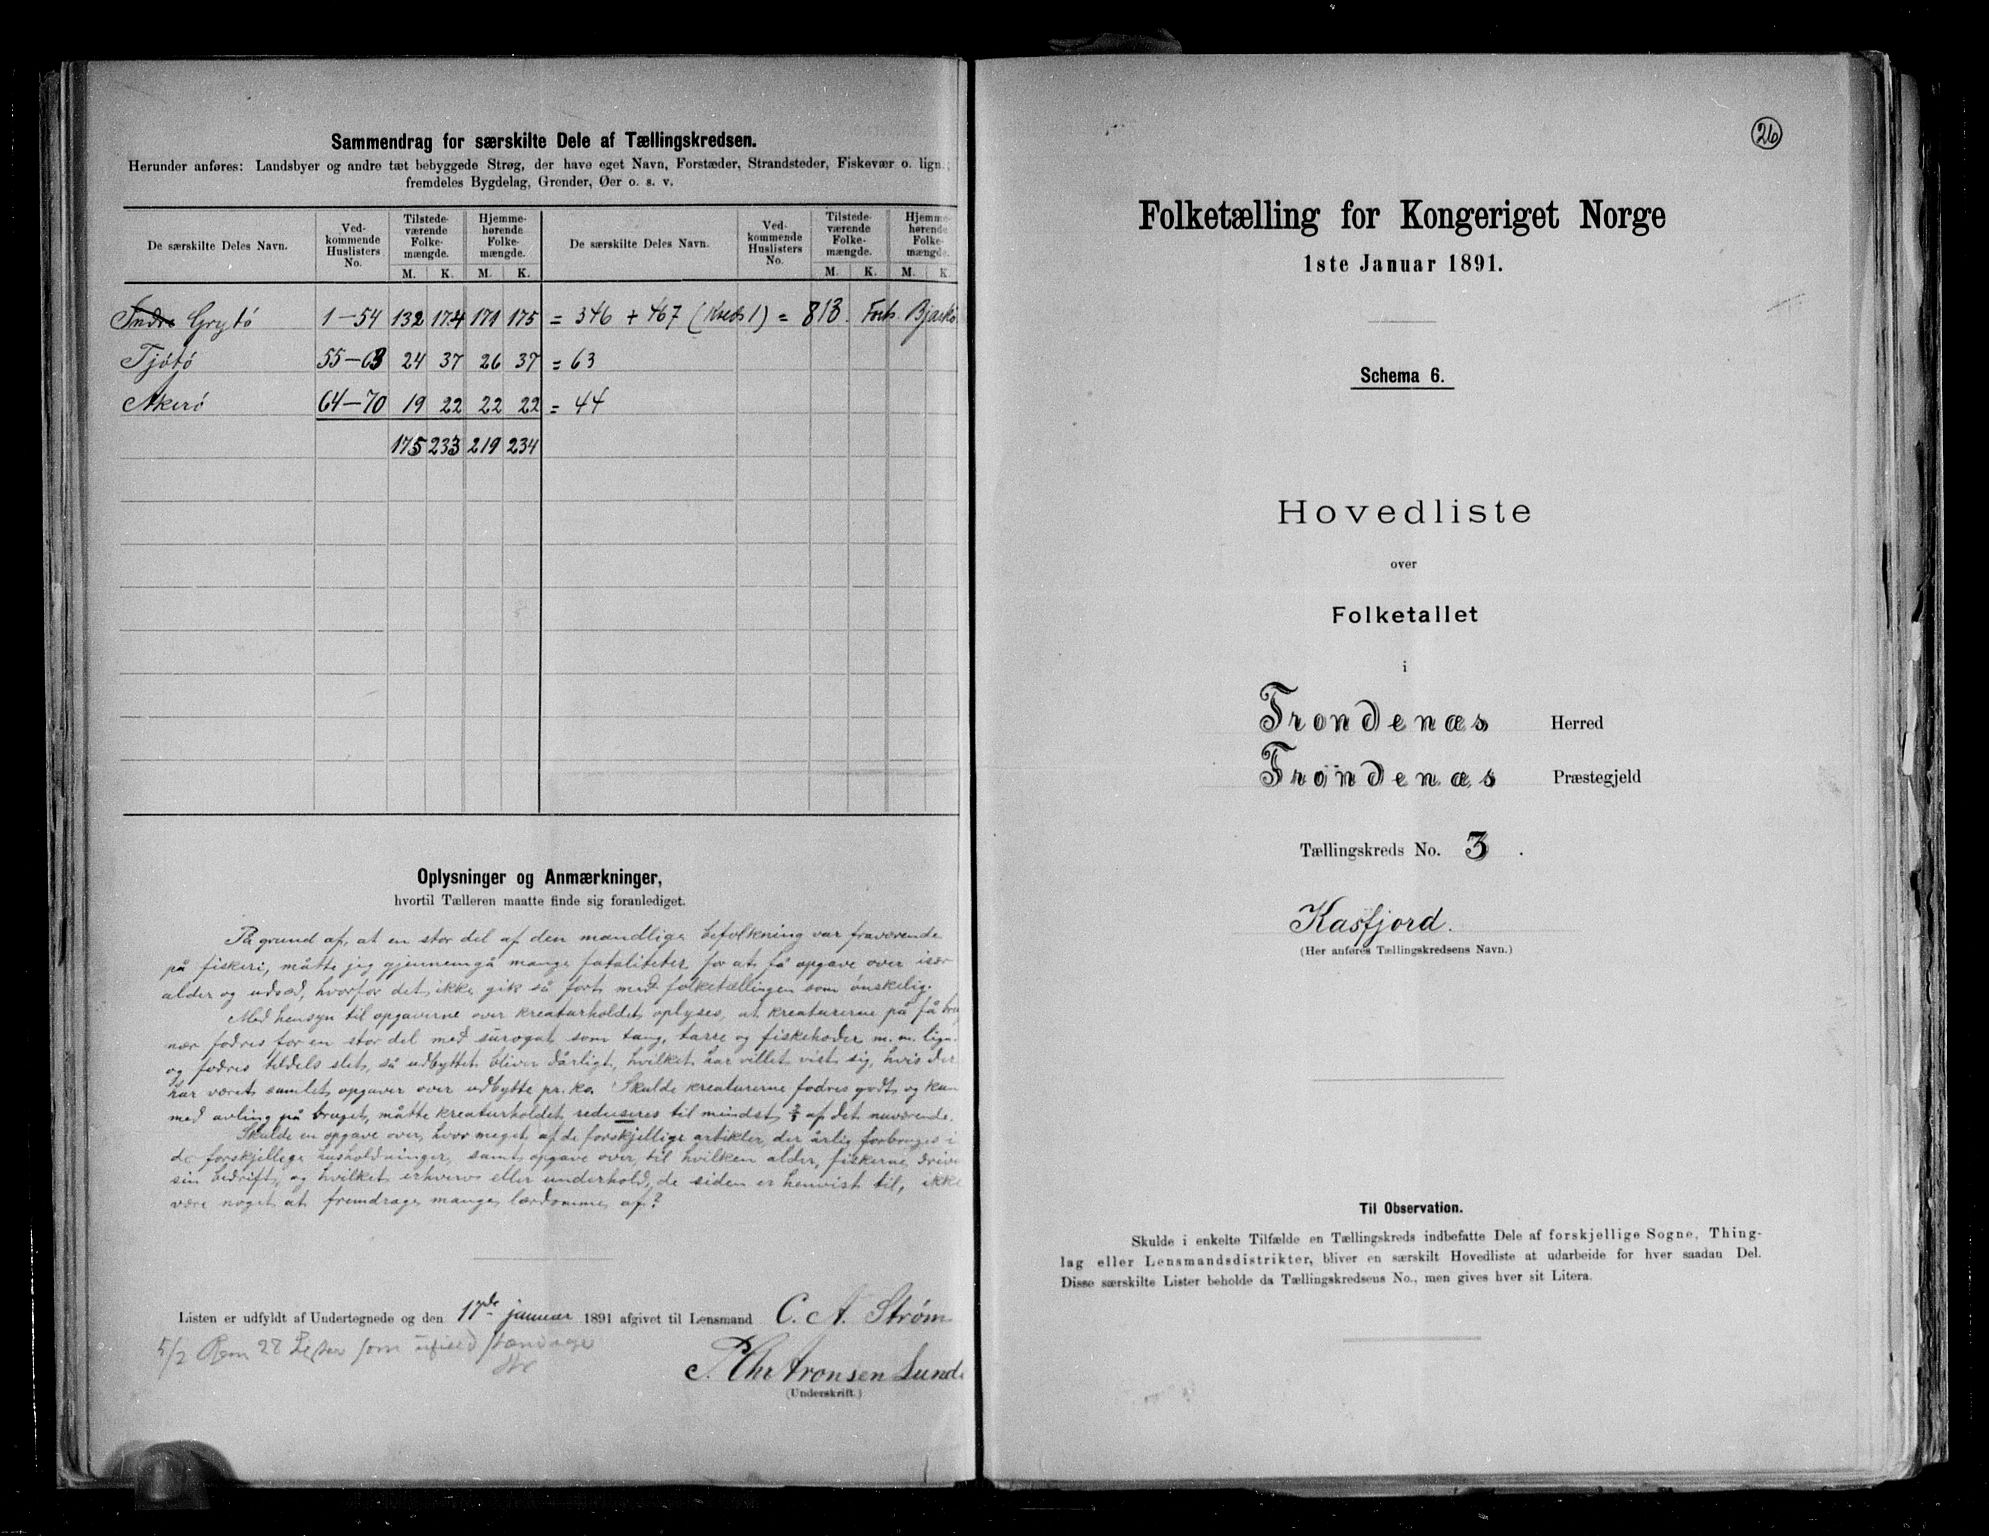 Sammendrag for særskilte Dele af Tællingskredsen.
Herunder anføres: Landsbyer og andre tæt bebyggede Strøg, der have eget Navn, Forstæder, Strandsteder, Fiskevær o. lign.;
fremdeles Bygdelag, Grender, Øer o. s. v.
De særskilte Deles Navn. Ved-kommende Huslisters No. Tilstede-værende Folke-mængde. Hjemme-hørende Folke-mængde. De særskilte Deles Navn. Ved-kommende Huslisters No. Tilstede-værende Folke-mængde. Hjemme-hørende Folke-mængde.
M. K. M. K. M. K. M. K.
Indre Grytö 1-54 132 174 171 175 = 346 + 467 (Kreds 1) = 813. Forts. Bjarkö
Tjötö 55-63 24 37 26 37 = 63
Akerö 64-70 19 22 22 22 = 44
175 233 219 234
Oplysninger og Anmærkninger,
hvortil Tælleren maatte finde sig foranlediget.
På grund af, at en stor del af den mandlige befolkning var fraværende
på fiskeri, måtte jeg gjennemgå mange fataliteter for at få opgave over især
alder og udsæd, hvorfor det ikke gik så fort med folketællingen som ønskelig.
Med hensyn til opgaverne over kreaturholdet oplyses, at kreaturerne på få brug
nær fodres for en stor del med surogat som tang, tarre og fiskehoder m. m. lign.
og fodres tildels slet, så udbyttet bliver dårligt, hvilket har villet vist sig, hvis der
har været samlet opgaver over udbytte pr. ko. Skulde kreaturerne fodres godt og kun
med avling på bruget, måtte kreaturholdet reduseres til mindst af det nuværende.
Skulde en opgave over, hvor meget af de forskjellige artikler, der årlig forbruges i
de forskjellege husholdninger, samt opgave over, til hvilken alder, fiskerne drive
sin bedrift, og hvilket erhverv eller underhold, de siden er henvist til, ikke
være noget at fremdrage mange lærdomme af?
Listen er udfyldt af Undertegnede og den 17de januar 1891 afgivet til Lensmand C. A. Strøm
5/2 28 Lister som
P. Chr Aronsen Lund
(Underskrift.)
26
Folketælling for Kongeriget Norge
1ste Januar 1891.
Schema 6.
Hovedliste
over
Folketallet
i
Trondenæs Herred
Trondenæs Præstegjeld
Tællingskreds No. 3.
Kasfjord.
(Her anføres Tællingskredsens Navn.)
Til Observation.
Skulde i enkelte Tilfælde en Tællingskreds indbefatte Dele af forskjellige Sogne, Thing-
lag eller Lensmandsdistrikter, bliver en særskilt Hovedliste at udarbeide for hver saadan Del.
Disse særskilte Lister beholde da Tællingskredsens No., men gives hver sit Litera.